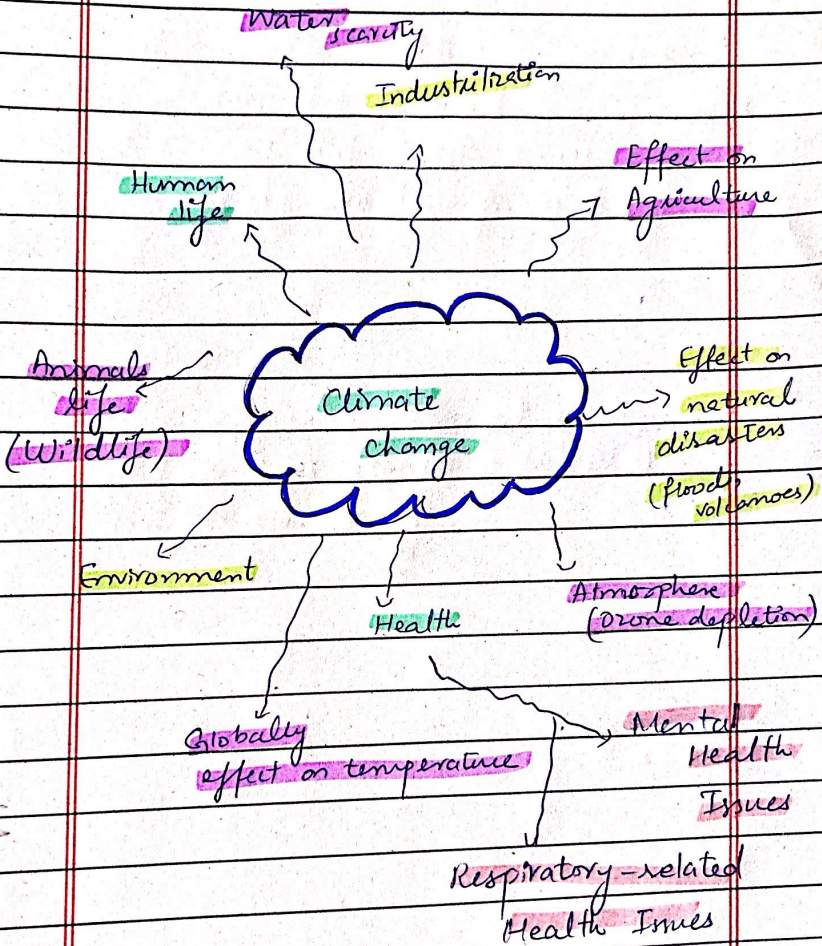 Water
scarcity
Industrilization
Effect on
Agriculture
Human
life
Animals
life
(Wildlife)
Climate
change
Effect on
natural
disasters
(floods,
volcanoes)
Environment
Health
Atmosphere
(Ozone depletion)
Globally
effect on temperature
Mental
Health
Issues
Respiratory-related
Health Issues